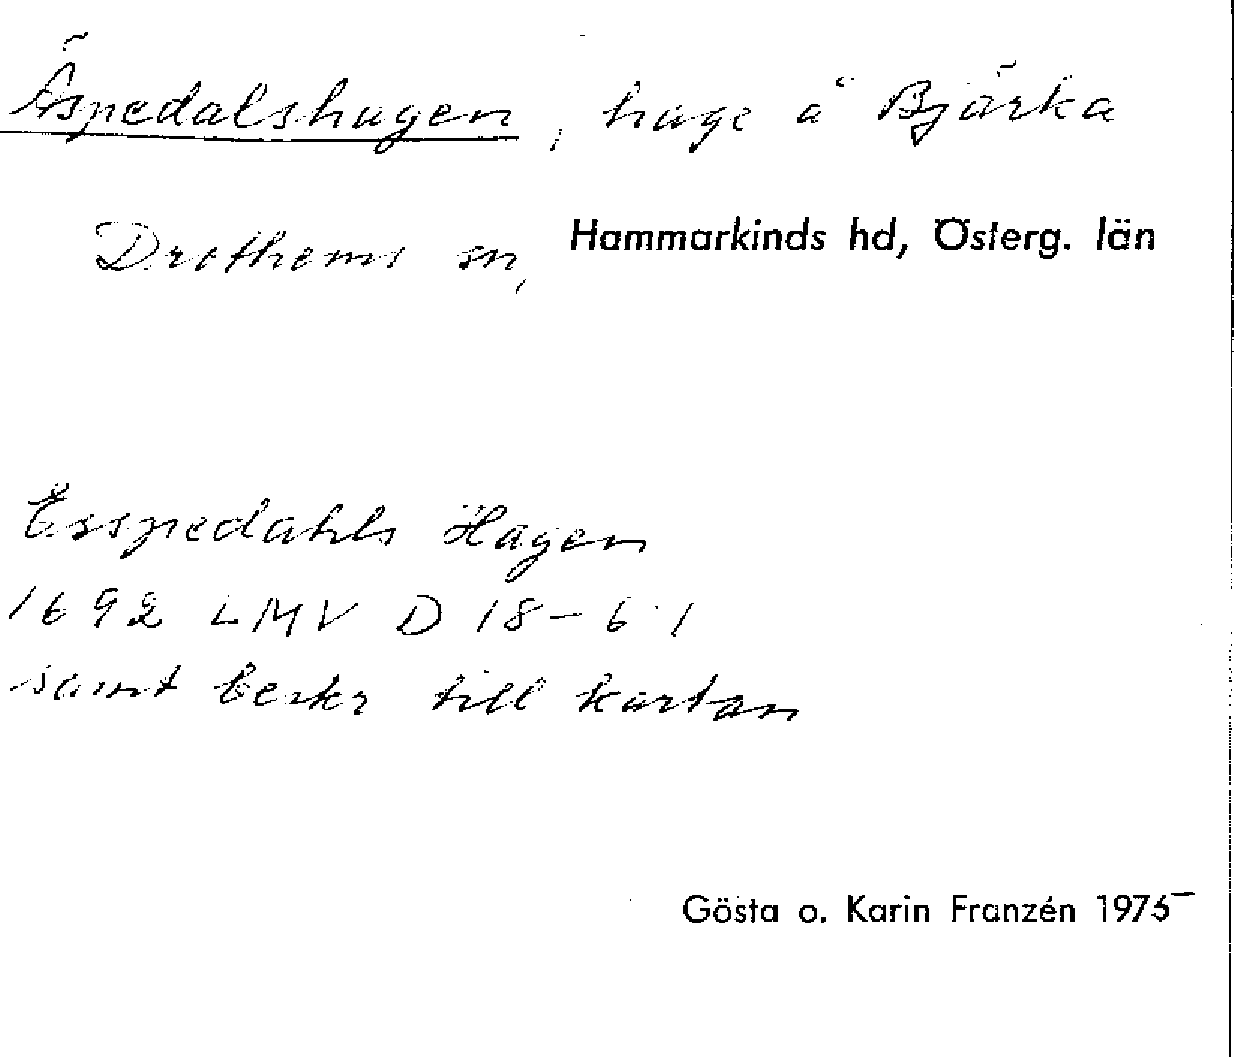 Äspedalshagen, hage å Bjärka
Drothems sn, Hammarkinds hd, Österg. län
Esspedahls Hagen
1692 LMV D 18-6:1
samt beskr till kartan
Gösta o. Karin Franzén 1975